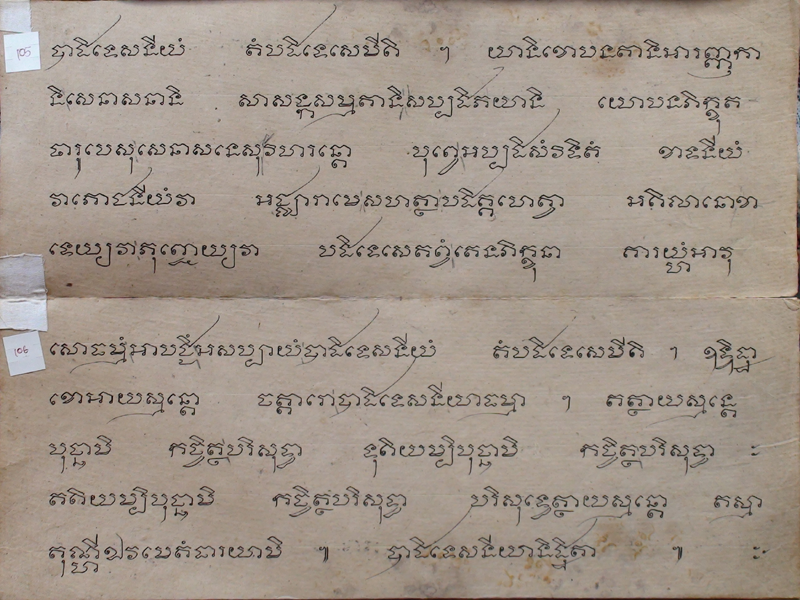 105
បាដិទេសនីយំ តំបដិទេសេមីតិ ។ យានិខោបនតានិអារញ្ញកា
និសេនាសនានិ សាសង្កសម្មតានិសប្បដិភយានិ យោបនភិក្ខុត
ថារូបេសុសេនាសនេសុវិហរន្តោ បុព្វេអប្បដិសំវិទិតំ ខាទនីយំ
វាភោជនីយំវា អជ្ឈារាមេសហត្ថាបដិគ្គហេត្វា អគិលានោខា
ទេយ្យវាភុញ្ជេយ្យវា បដិទេសេតព្វំតេនភិក្ខុនា គារយ្ហំអាវុ
106
សោធម្មំអាបជ្ជឹអសប្បាយំបាដិទេសនីយំ តំបដិទេសេមីតិ ។ ឧទ្ទិដ្ឋា
ខោអាយស្មន្តោ ចត្តារោបាដិទេសនីយាធម្មា ។ តត្ថាយស្មន្តេ
បុច្ឆាមិ កច្ចិត្ថបរិសុទ្ធា ទុតិយម្បិបុច្ឆាមិ កច្ចិត្ថបរិសុទ្ធា ៈ
តតិយម្បិបុច្ឆាមិ កច្ចិត្ថបរិសុទ្ធា បរិសុទ្ធេត្ថាយស្មន្តោ តស្មា
តុណ្ហីឯវមេតំធារយាមិ ៕ បាដិទេសនីយានិដ្ឋិតា ៕ ៈ